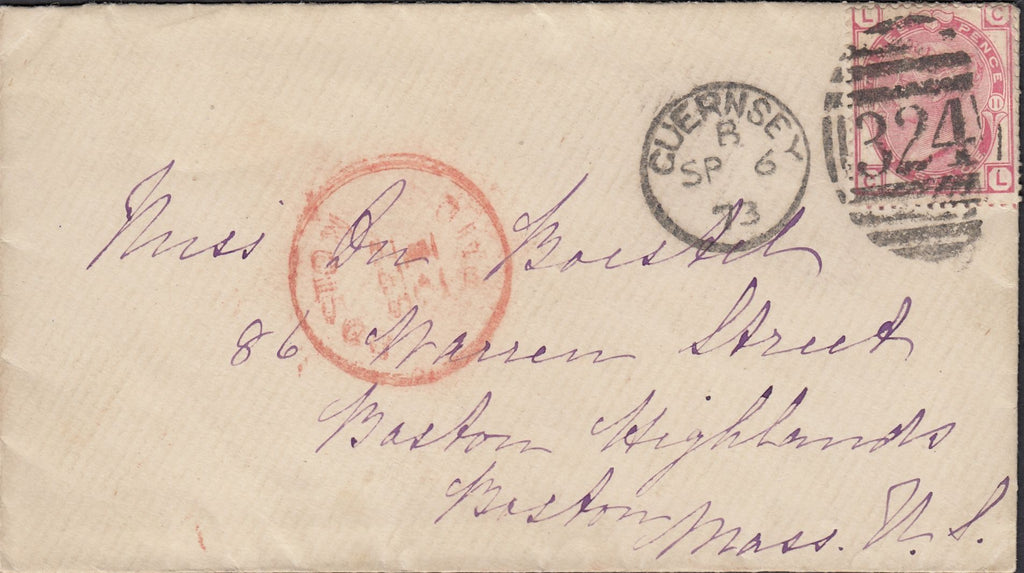 L C
PENCE
11
L
324
GUERNSEY
B
SP 6
73
Miss Du Boistel
86 Warren Street
Boston Highlands
Boston Mass. U. S.